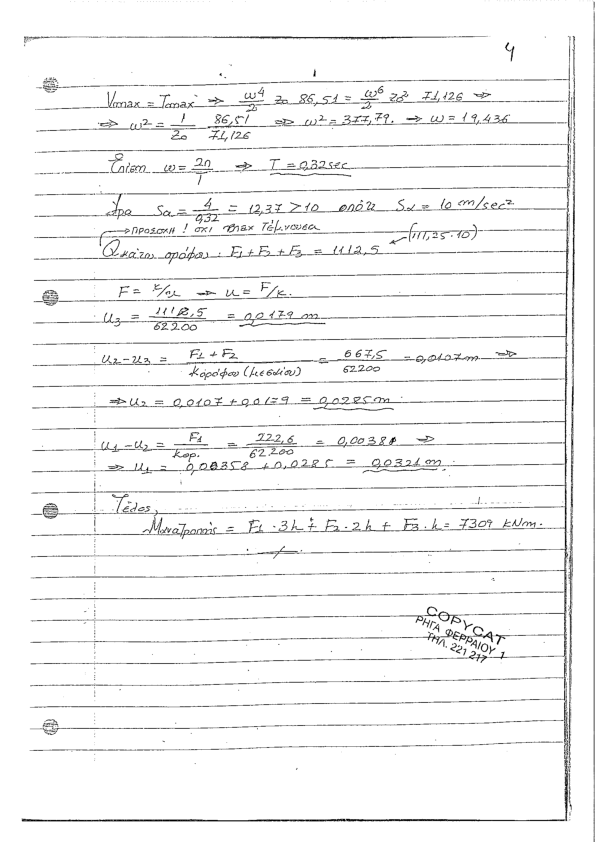 4
Vmax = Tmax ⇒ ω⁴/2 z₀ 86,51 = ω⁶/2 z₀² 71,126 ⇒
⇒ ω² = 1/z₀ 86,51/71,126 ⇒ ω² = 377,79. ⇒ ω = 19,436
Επίση ω = 2π/T ⇒ T = 0,32 sec
Άρα Sα = 4/0,32 = 12,37 > 10 οπότε Sα = 10 m/sec²
→ ΠΡΟΣΟΧΗ ! όχι max Τέμνουσα
Q κάτω ορόφου : F₁ + F₂ + F₃ = 1112,5 (111,25·10)
F = k/u ⇒ u = F/k.
u₃ = 1112,5/62200 = 0,0179 m
u₂-u₃ = F₁ + F₂/Κορόφου (μεσαίου) = 667,5/62200 = 0,0107m ⇒
⇒ u₂ = 0,0107 + 0,0179 = 0,0285 m
u₁-u₂ = F₁/Κορ. = 222,6/62200 = 0,00358 ⇒
⇒ u₁ = 0,00358 + 0,0285 = 0,0321 m
Τέλος,
Μανατροπής = F₁ · 3h + F₂ · 2h + F₃ · h = 7309 kNm.
COPYCAT
ΡΗΓΑ ΦΕΡΡΑΙΟΥ 1
ΤΗΛ. 221 217